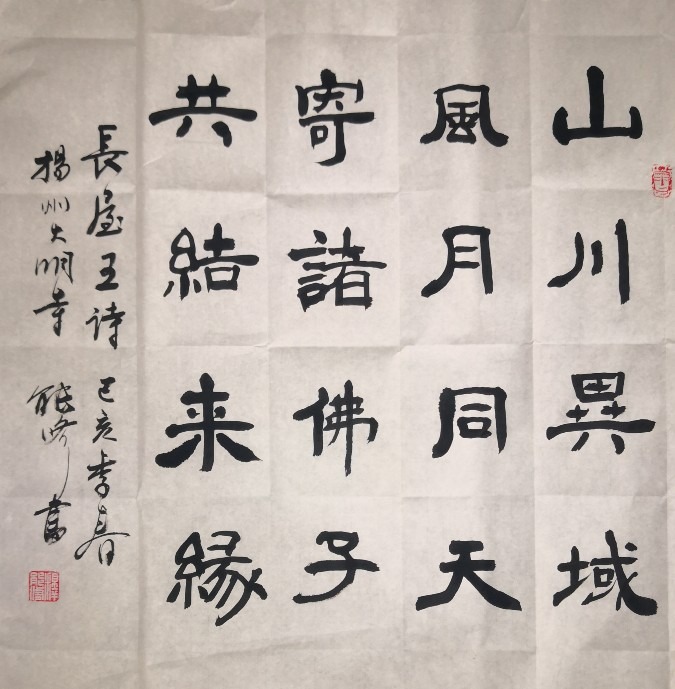 山川異域
風月同天
寄諸佛子
共結来縁
長屋王诗 己亥季春
揚州大明寺 能修書